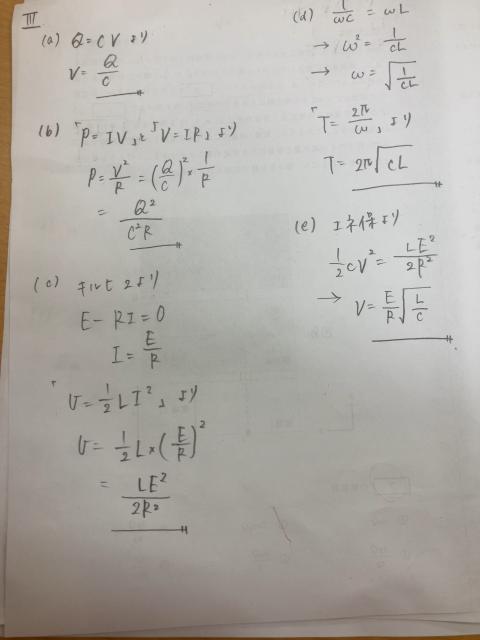 III
(a) Q=CV より
V= Q/C
(b) 「P=IV」と「V=IR」より
P= V²/R = (Q/C)² × 1/R
= Q²/C²R
(c) キルヒ2より
E- RI=0
I= E/R
「U= 1/2 LI²」より
U= 1/2 L×(E/R)²
= LE²/2R²
(d) 1/ωC = ωL
→ ω²= 1/CL
→ ω= √(1/CL)
「T= 2π/ω」より
T= 2π√CL
(e) エネ保より
1/2 CV²= LE²/2R²
→ V= E/R √(L/C)